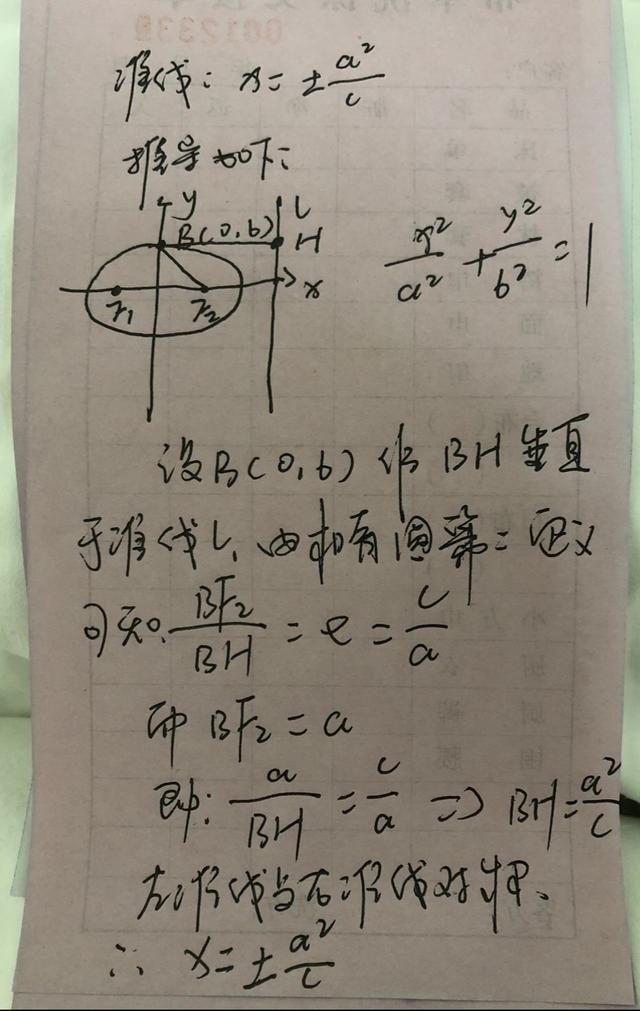 准线: x=±a²/c
推导如下:
y
l
B(0,b)
H
x
F₁
F₂
x²/a²+y²/b²=1
设B(0,b)作BH垂直
于准线l,由椭圆第二定义
可知.BF₂/BH=e=c/a
而BF₂=a
即:a/BH=c/a⇒BH=a²/c
左准线与右准线对称、
∴x=±a²/c